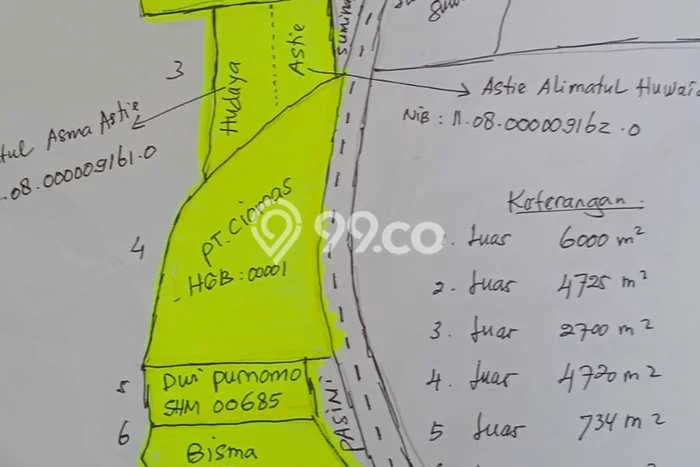 3
Hudaya
Astie
Asma Astie
.08.000009161.0
Astie Alimatul Huwaid
NIB : 11.08.000009162.0
4
PT. Ciomas
HGB : 00001
99.co
Keterangan :
1. Luas 6000 m²
2. Luas 4725 m²
3. Luas 2700 m²
4. Luas 4720 m²
5 Luas 734 m²
5
Dwi Purnomo
SHM 00685
6
Bisma